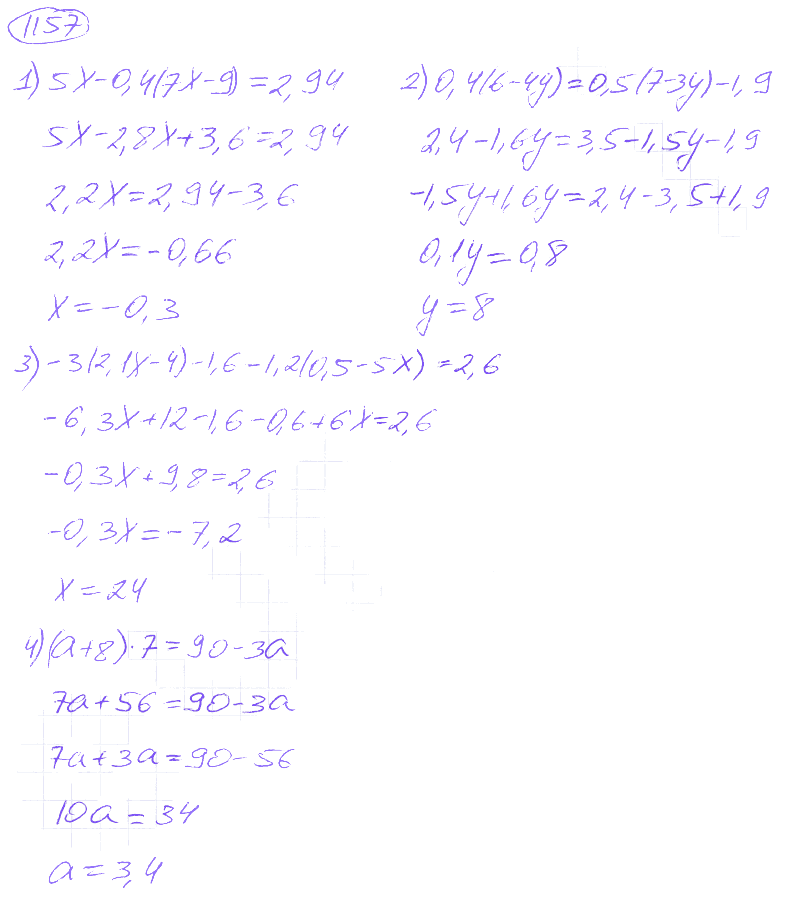 1157
1) 5x-0,4(7x-9)=2,94
5x-2,8x+3,6=2,94
2,2x=2,94-3,6
2,2x=-0,66
x=-0,3
2) 0,4(6-4y)=0,5(7-3y)-1,9
2,4-1,6y=3,5-1,5y-1,9
-1,5y+1,6y=2,4-3,5+1,9
0,1y=0,8
y=8
3) -3(2,1x-4)-1,6-1,2(0,5-5x)=2,6
-6,3x+12-1,6-0,6+6x=2,6
-0,3x+9,8=2,6
-0,3x=-7,2
x=24
4) (a+8)·7=90-3a
7a+56=90-3a
7a+3a=90-56
10a=34
a=3,4